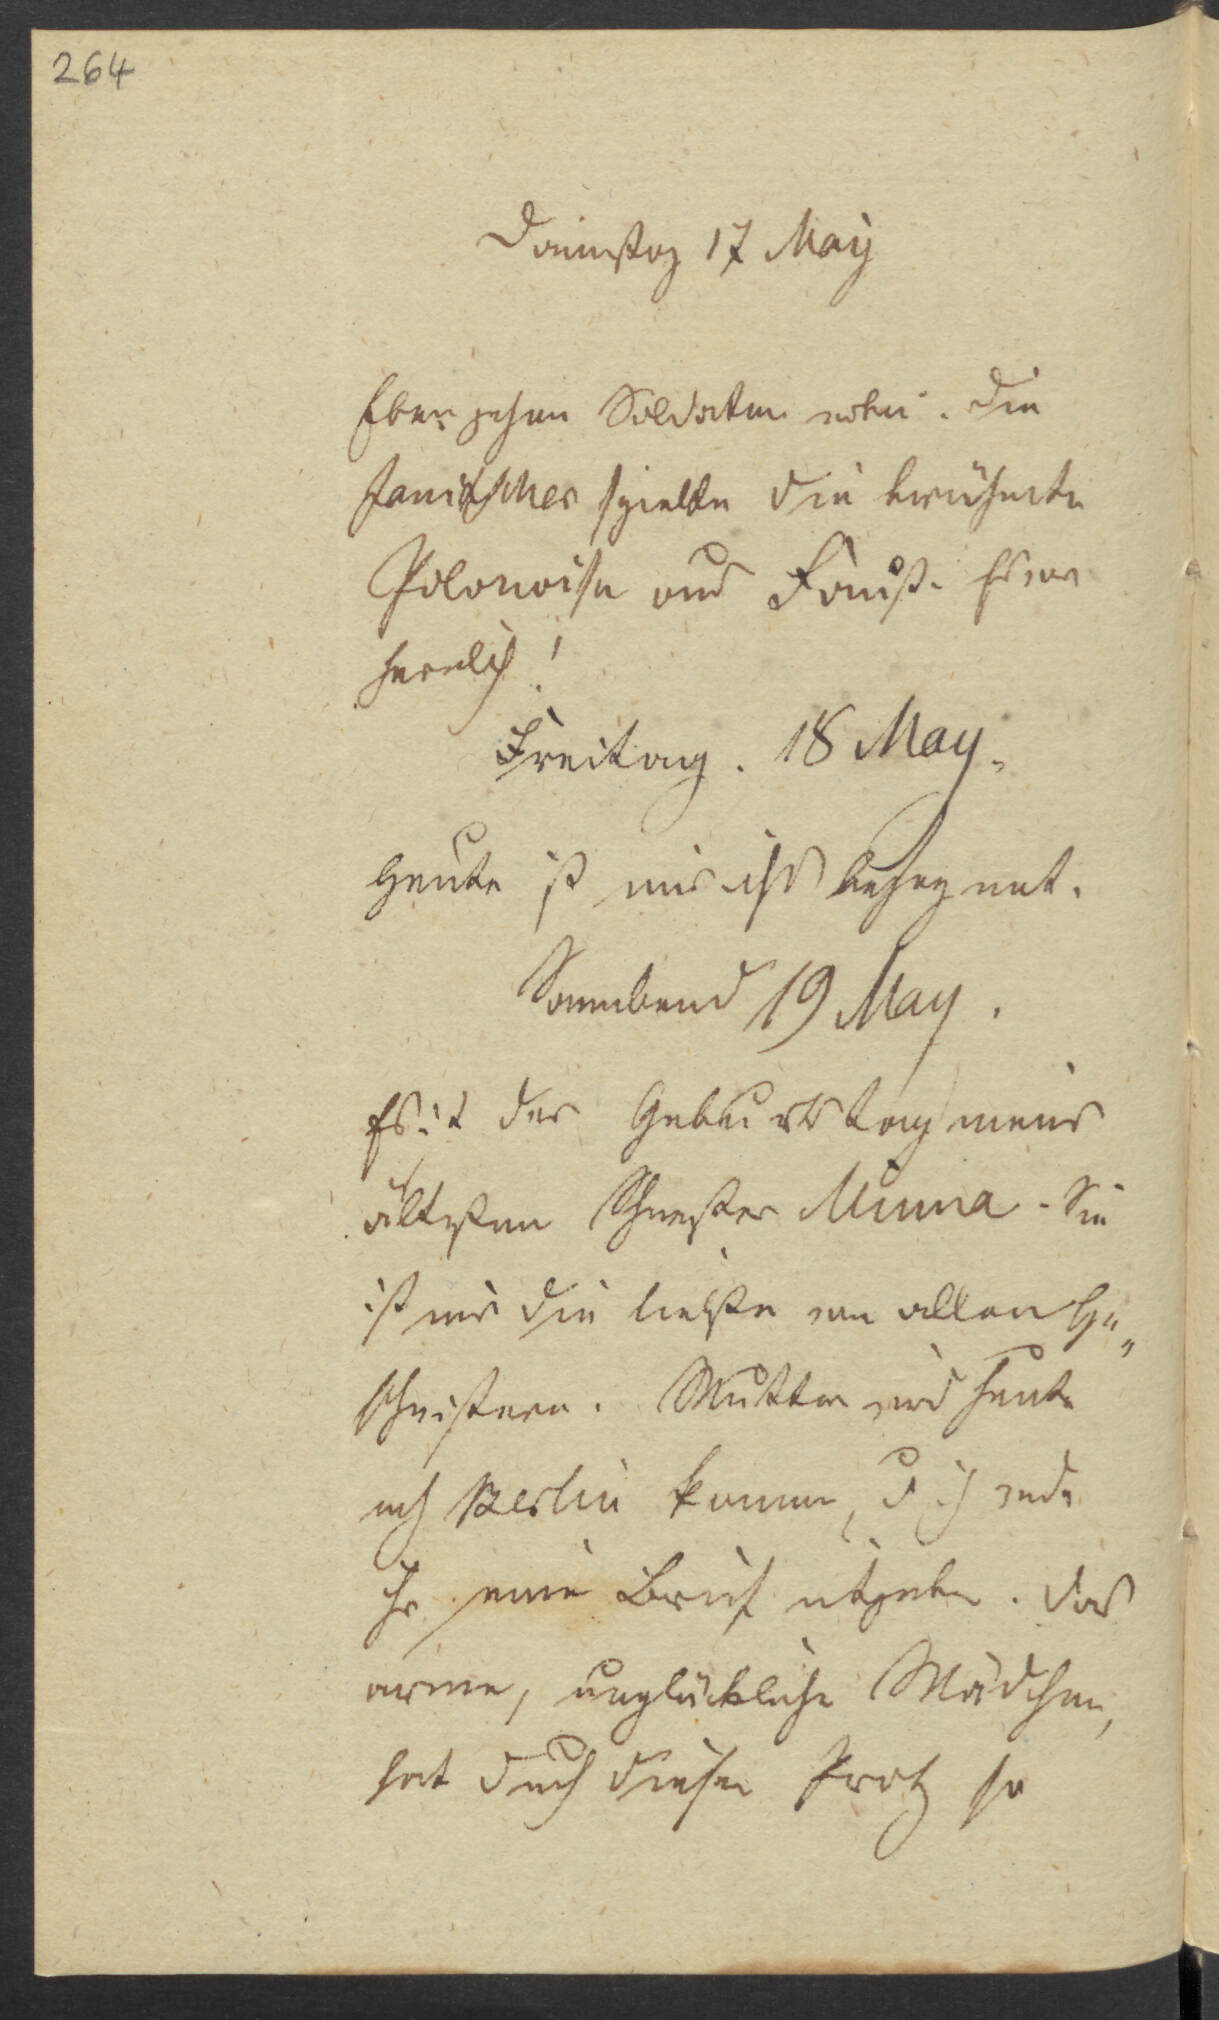 264
Donnerstag 17 May
Eben gehen Soldaten vorbei. Die
Janitscher spielten die berühmte
Polonoise aus Faust. Es war
herrlich!
Freitag. 18 May.
Heute ist mir nichts begegnet.
Sonnabend 19 May.
Es ist der Geburtstag meiner
ältesten Schwester Minna. Sie
ist mir die liebste von allen Ge„
schwistern. Mutter wird heute
nach Berlin kommen, u ich werde
ihr einen Brief mitgeben. Das
arme, unglückliche Mädchen,
hat durch diesen so